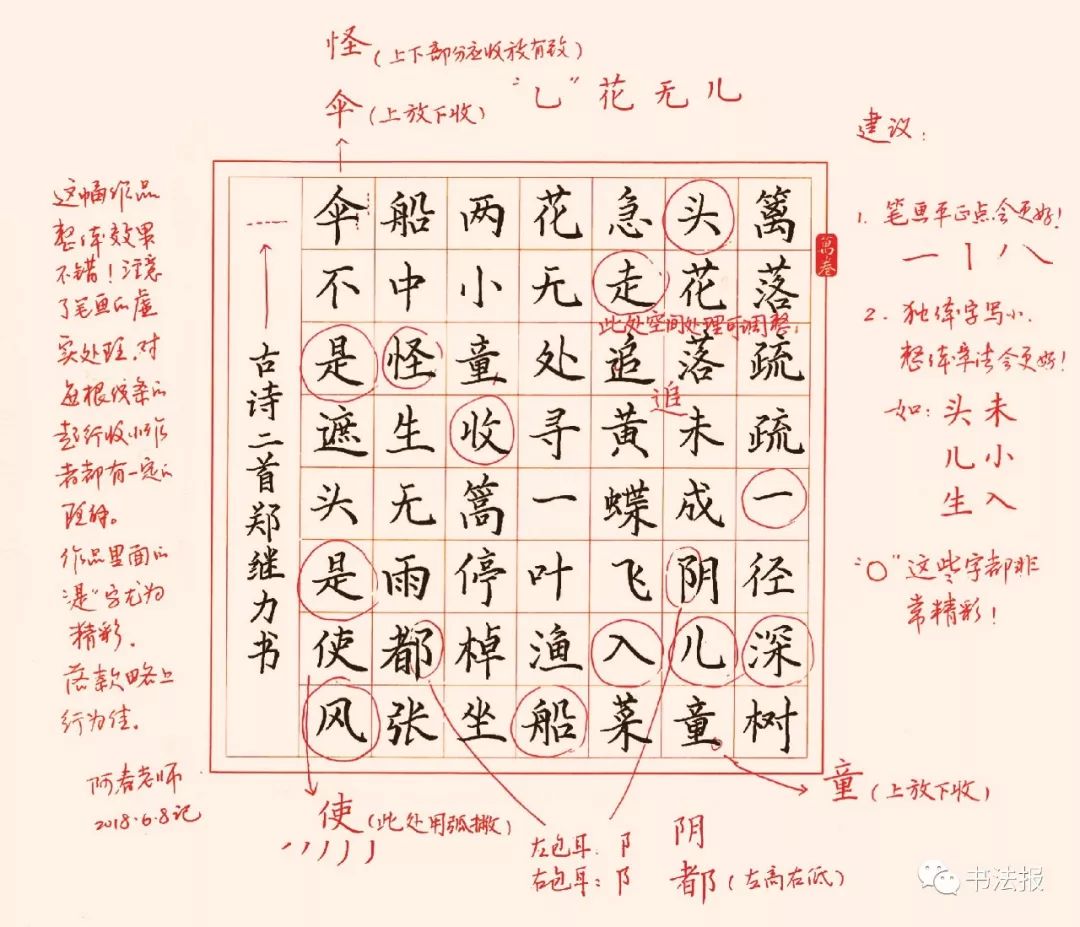 怪(上下部分应收放有致)
伞(上放下收)
“乚”花无儿
建议:
1. 笔画平正点会更好!
一丨丿乀
2. 独体字写小.
整体章法会更好!
如:头未
儿小
生入
“○”这些字都非
常精彩!
篱落疏疏一径深树
头花落未成阴儿童
急走追黄蝶飞入菜
花无处寻一叶渔船
两小童收篙停棹坐
船中怪生无雨都张
伞不是遮头是使风
古诗二首郑继力书
此处空间处理可调整.
追
这幅作品
整体效果
不错!注意
了笔画的虚
实处理.对
每根线条的
起行收小作
者都有一定的
理解。
作品里面的
“是”字尤为
精彩.
落款略上
行为佳.
阿春老师
2018.6.8记
使(此处用弧撇)
左包耳:阝 阴
右包耳:阝 都(左高右低)
童(上放下收)
书法报